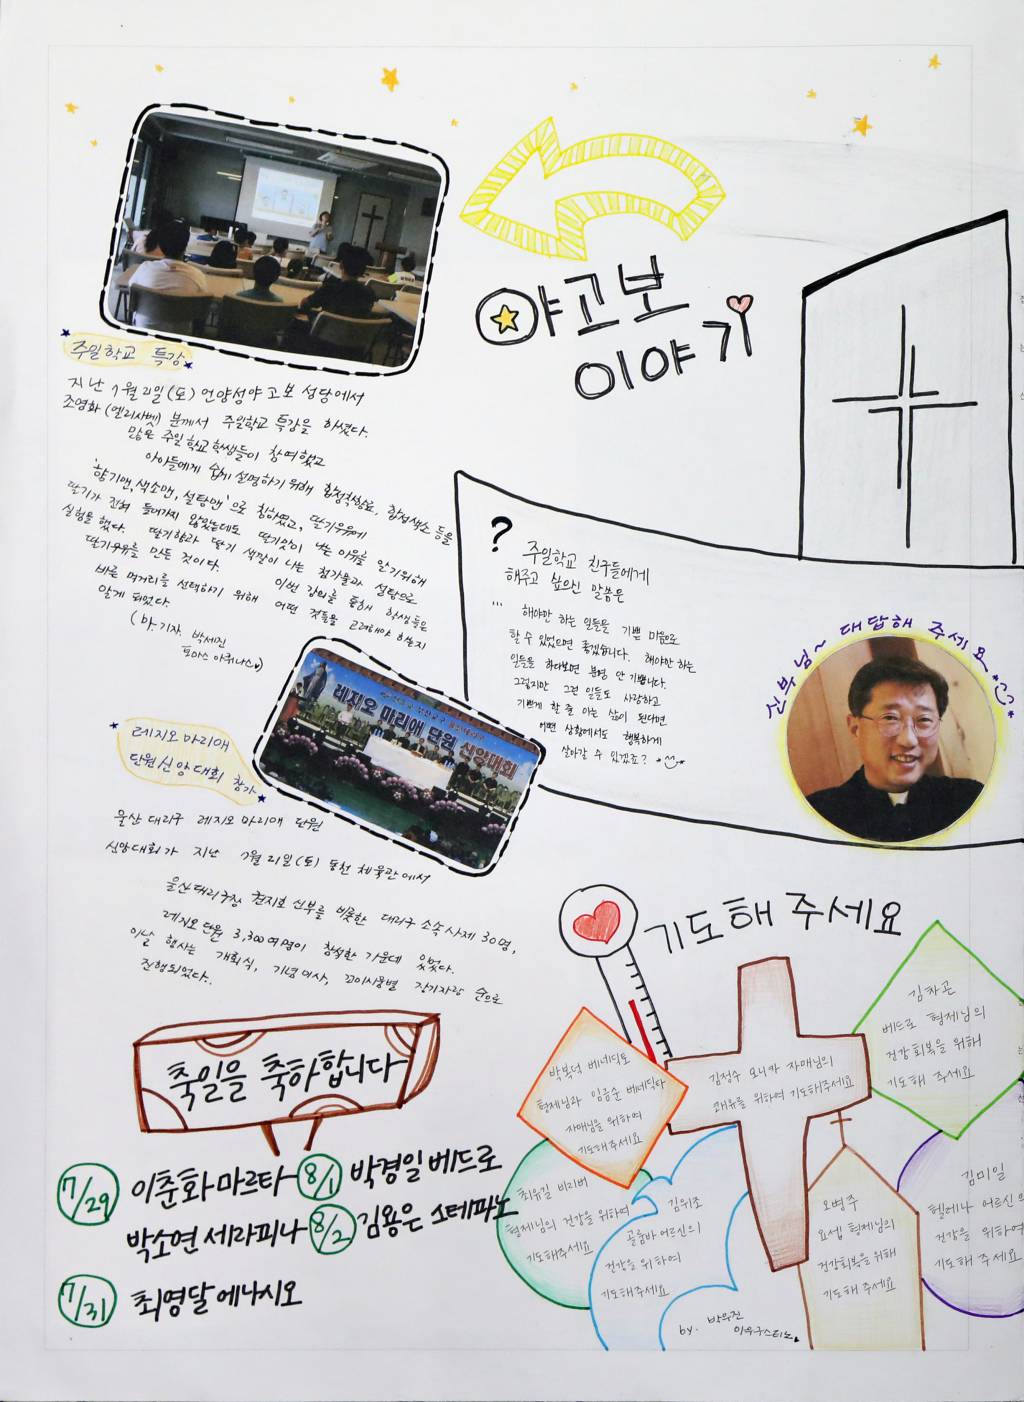 야고보
이야기
주일학교 특강
지난 7월 21일(토) 언양성야고보 성당에서
조영화(엘리사벳) 분께서 주일학교 특강을 하셨다.
많은 주일학교학생들이 참여했고
아이들에게 쉽게 설명하기 위해 합성착향료, 합성색소 등을
'향기맨, 색소맨, 설탕맨'으로 칭하였고, 딸기우유에
딸기가 전혀 들어가지 않았는데도 딸기맛이 나는 이유를 알기위해
실험을 했다. 딸기향과 딸기 색깔이 나는 첨가물과 설탕으로
딸기우유를 만든 것이다. 이번 강의를 통해 학생들은
바른 먹거리를 선택하기 위해 어떤 것들을 고려해야 하는지
알게 되었다.
(마.기자. 박세진
토마스 아퀴나스)
?
주일학교 친구들에게
해주고 싶으신 말씀은
... 해야만 하는 일들을 기쁜 마음으로
할 수 있었으면 좋겠습니다. 해야만 하는
일들을 하다보면 분명 안 기쁩니다.
그렇지만 그런 일들도 사랑하고
기쁘게 할 줄 아는 삶이 된다면
어떤 상황에서도 행복하게
살아갈 수 있겠죠?
신부님~ 대답해 주세요
레지오 마리애 단원 신앙대회
레지오 마리애
단원신앙대회 참가
울산 대리구 레지오 마리애 단원
신앙대회가 지난 7월 21일(토) 동천 체육관에서
울산대리구장 권지호 신부를 비롯한 대리구 소속 사제 30명,
레지오 단원 3,300여명이 참석한 가운데 있었다.
이날 행사는 개회식, 기념미사, 꼬미시움별 장기자랑 순으로
진행되었다.
축일을 축하합니다
7/29 이춘화 마르타
박소연 세라피나
7/31 최영달 에나시오
8/1 박경일 베드로
8/2 김용은 스테파노
기도해 주세요
박복덕 베네딕토
형제님과 임금순 베네딕다
자매님을 위하여
기도해주세요
김정수 모니카 자매님의
쾌유를 위하여 기도해주세요
김차곤
베드로 형제님의
건강 회복을 위해
기도해 주세요
최유길 비리버
형제님의 건강을 위하여
기도해주세요
김위조
골룸바 어르신의
건강을 위하여
기도해주세요
오병주
요셉 형제님의
건강회복을 위해
기도해 주세요
김미일
헬레나 어르신의
건강을 위하여
기도해 주세요
by. 박우진
아우구스티노